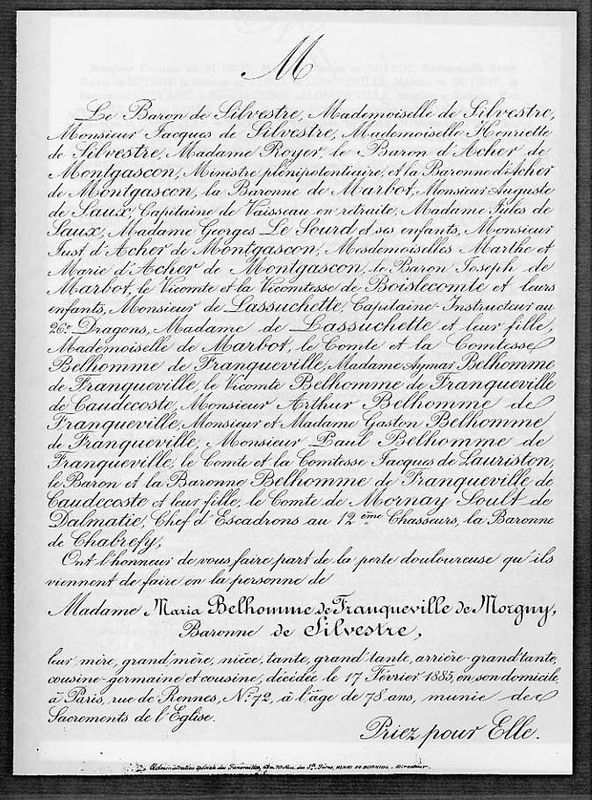 M
Le Baron de Silvestre, Mademoiselle de Silvestre,
Monsieur Jacques de Silvestre, Mademoiselle Henriette
de Silvestre, Madame Royer, le Baron d'Acher de
Montgascon, Ministre plénipotentiaire, et la Baronne d'Acher
de Montgascon, la Baronne de Marbot, Monsieur Auguste
de Saux, Capitaine de Vaisseau en retraite, Madame Jules de
Saux, Madame Georges Le Sourd et ses enfants, Monsieur
Just d'Acher de Montgascon, Mesdemoiselles Marthe et
Marie d'Acher de Montgascon, le Baron Joseph de
Marbot, le Vicomte et la Vicomtesse de Boislecomte et leurs
enfants, Monsieur de Lassuchette, Capitaine-Instructeur au
26e Dragons, Madame de Lassuchette et leur fille,
Mademoiselle de Marbot, le Comte et la Comtesse
Belhomme de Franqueville, Madame Aymar Belhomme
de Franqueville, le Vicomte Belhomme de Franqueville
de Caudecoste, Monsieur Arthur Belhomme de
Franqueville, Monsieur et Madame Gaston Belhomme
de Franqueville, Monsieur Paul Belhomme de
Franqueville, le Comte et la Comtesse Jacques de Lauriston,
le Baron et la Baronne Belhomme de Franqueville de
Caudecoste et leur fille, le Comte de Mornay Soult de
Dalmatie, Chef d'Escadrons au 12ème Chasseurs, la Baronne
de Chabrefy,
Ont l'honneur de vous faire part de la perte douloureuse qu'ils
viennent de faire en la personne de
Madame Maria Belhomme de Franqueville de Morgny,
Baronne de Silvestre,
leur mère, grand'mère, nièce, tante, grand'tante, arrière-grand'tante,
cousine-germaine et cousine, décédée le 17 Février 1885, en son domicile,
à Paris, rue de Rennes, No. 72, à l'âge de 78 ans, munie des
Sacrements de l'Eglise.
Priez pour Elle.
Administration spéciale des Funérailles, Rue des Sts Pères, HENRI DE BORNIOL, Directeur